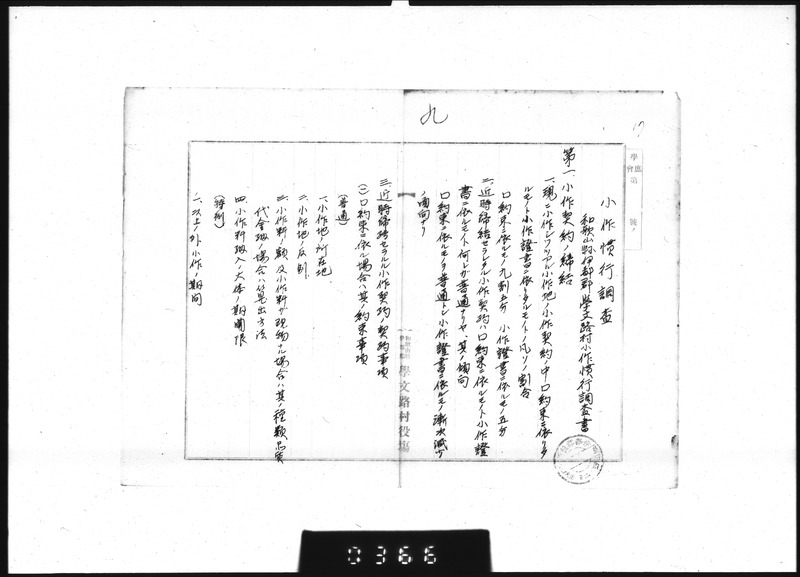 九
學庶
會
第
號ノ
小作慣行調査
和歌山縣伊都郡學文路村小作慣行調査書
第一、小作契約ノ締結
一、現ニ小作シツヽアル小作地ノ小作契約ノ中口約束ニ依リタ
ルモノト小作證書ニ依リタルモノトノ凡ソノ割合
口約束ニ依ルモノ九割五分 小作證書ニ依ルモノ五分
二、近時締結セラレタル小作契約ハ口約束ニ依ルモノト小作證
書ニ依ルモノト何レガ普通ナリヤ、其ノ傾向
口約束ニ依ルモノヲ普通トシ小作證書ニ依ルモノ漸次減少
ノ傾向ナリ
三、近時締結セラルル小作契約ノ契約事項
(一)口約束ニ依ル場合ハ其ノ約束事項
(普通)
一、小作地ノ所在地
二、小作地ノ反別
三、小作料ノ額及小作料ガ現物ナル場合ハ其ノ種類品質
代金納ノ場合ハ算出方法
四、小作料納入ノ大体ノ期間限
(特別)
一、次上ノ外小作ノ期間
學文路村役場
0366